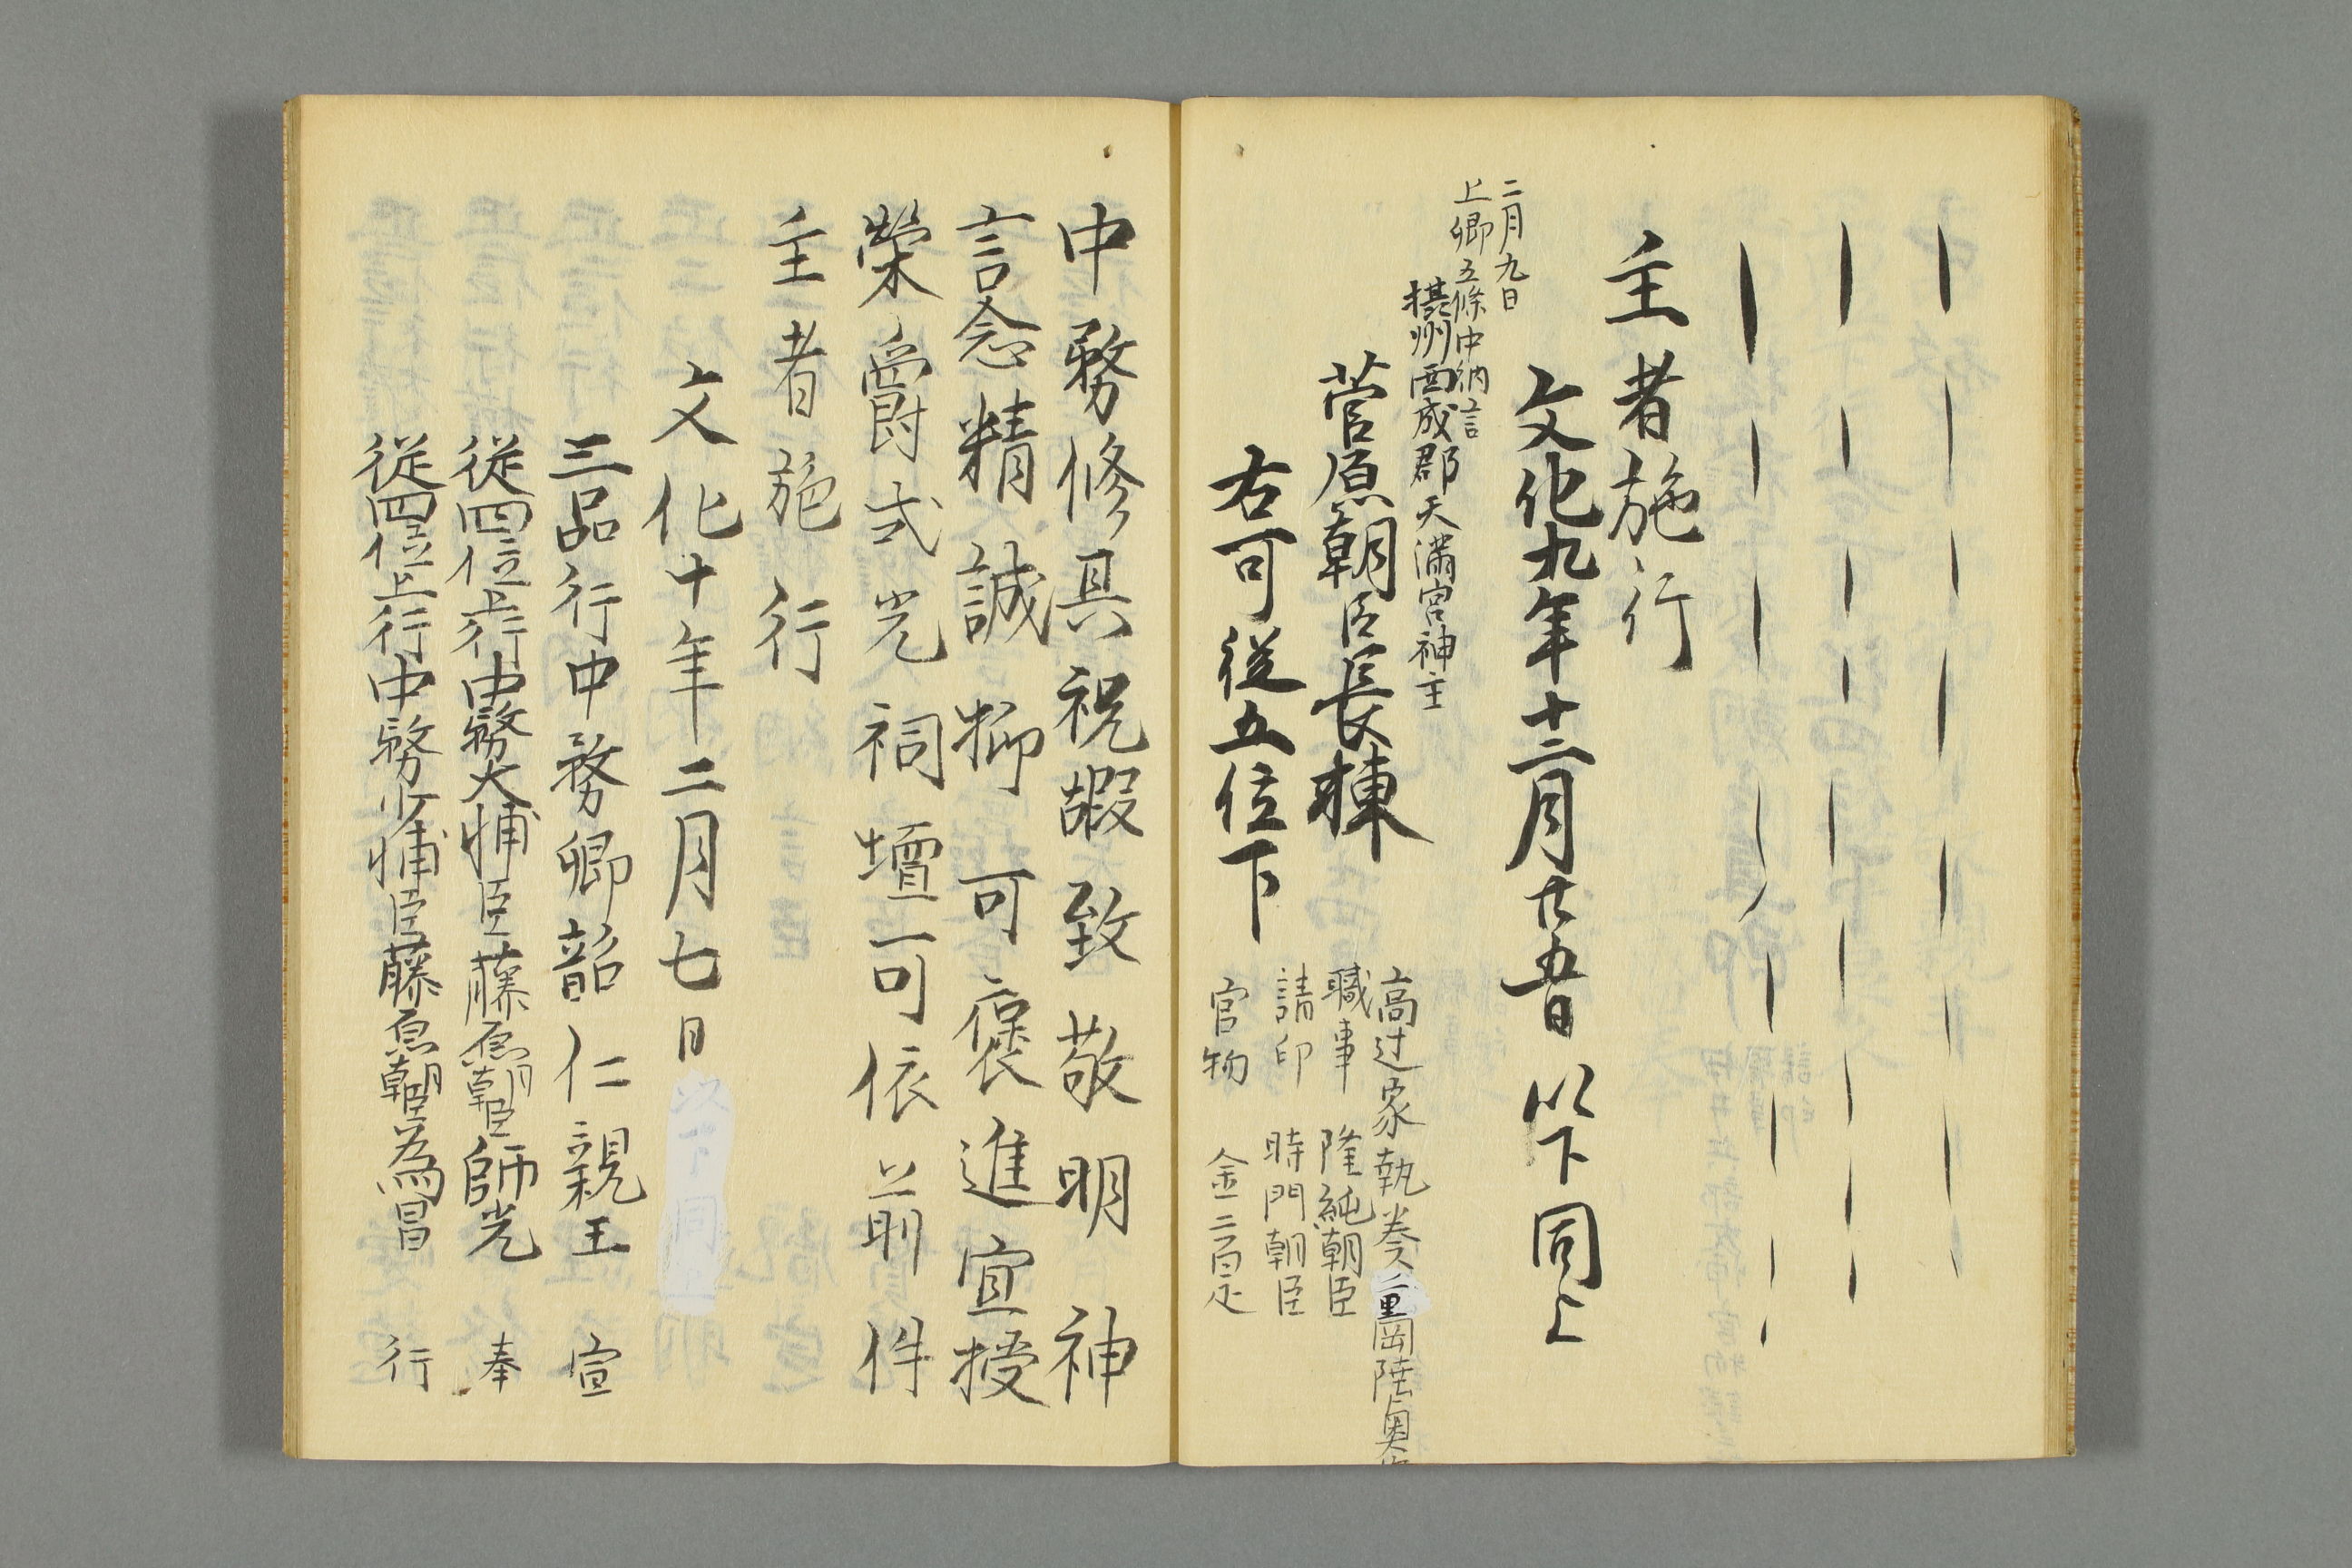 主者施行
文化九年十二月廿五日 以下同上
二月九日
上卿五條中納言
摂州西成郡天満宮神主
菅原朝臣長棟
右可従五位下
高辻家執奏 重岡陸奥
職事 隆純朝臣
請印 時門朝臣
官物 金二百疋
中務修具祝嘏致敬明神
言念精誠抑可褒進宜授
榮爵式光祠壇可依前件
主者施行
文化十年二月七日
三品行中務卿韶仁親王 宣
從四位上行中務大輔臣藤原朝臣師光 奉
從四位上行中務少輔臣藤原朝臣為昌 行